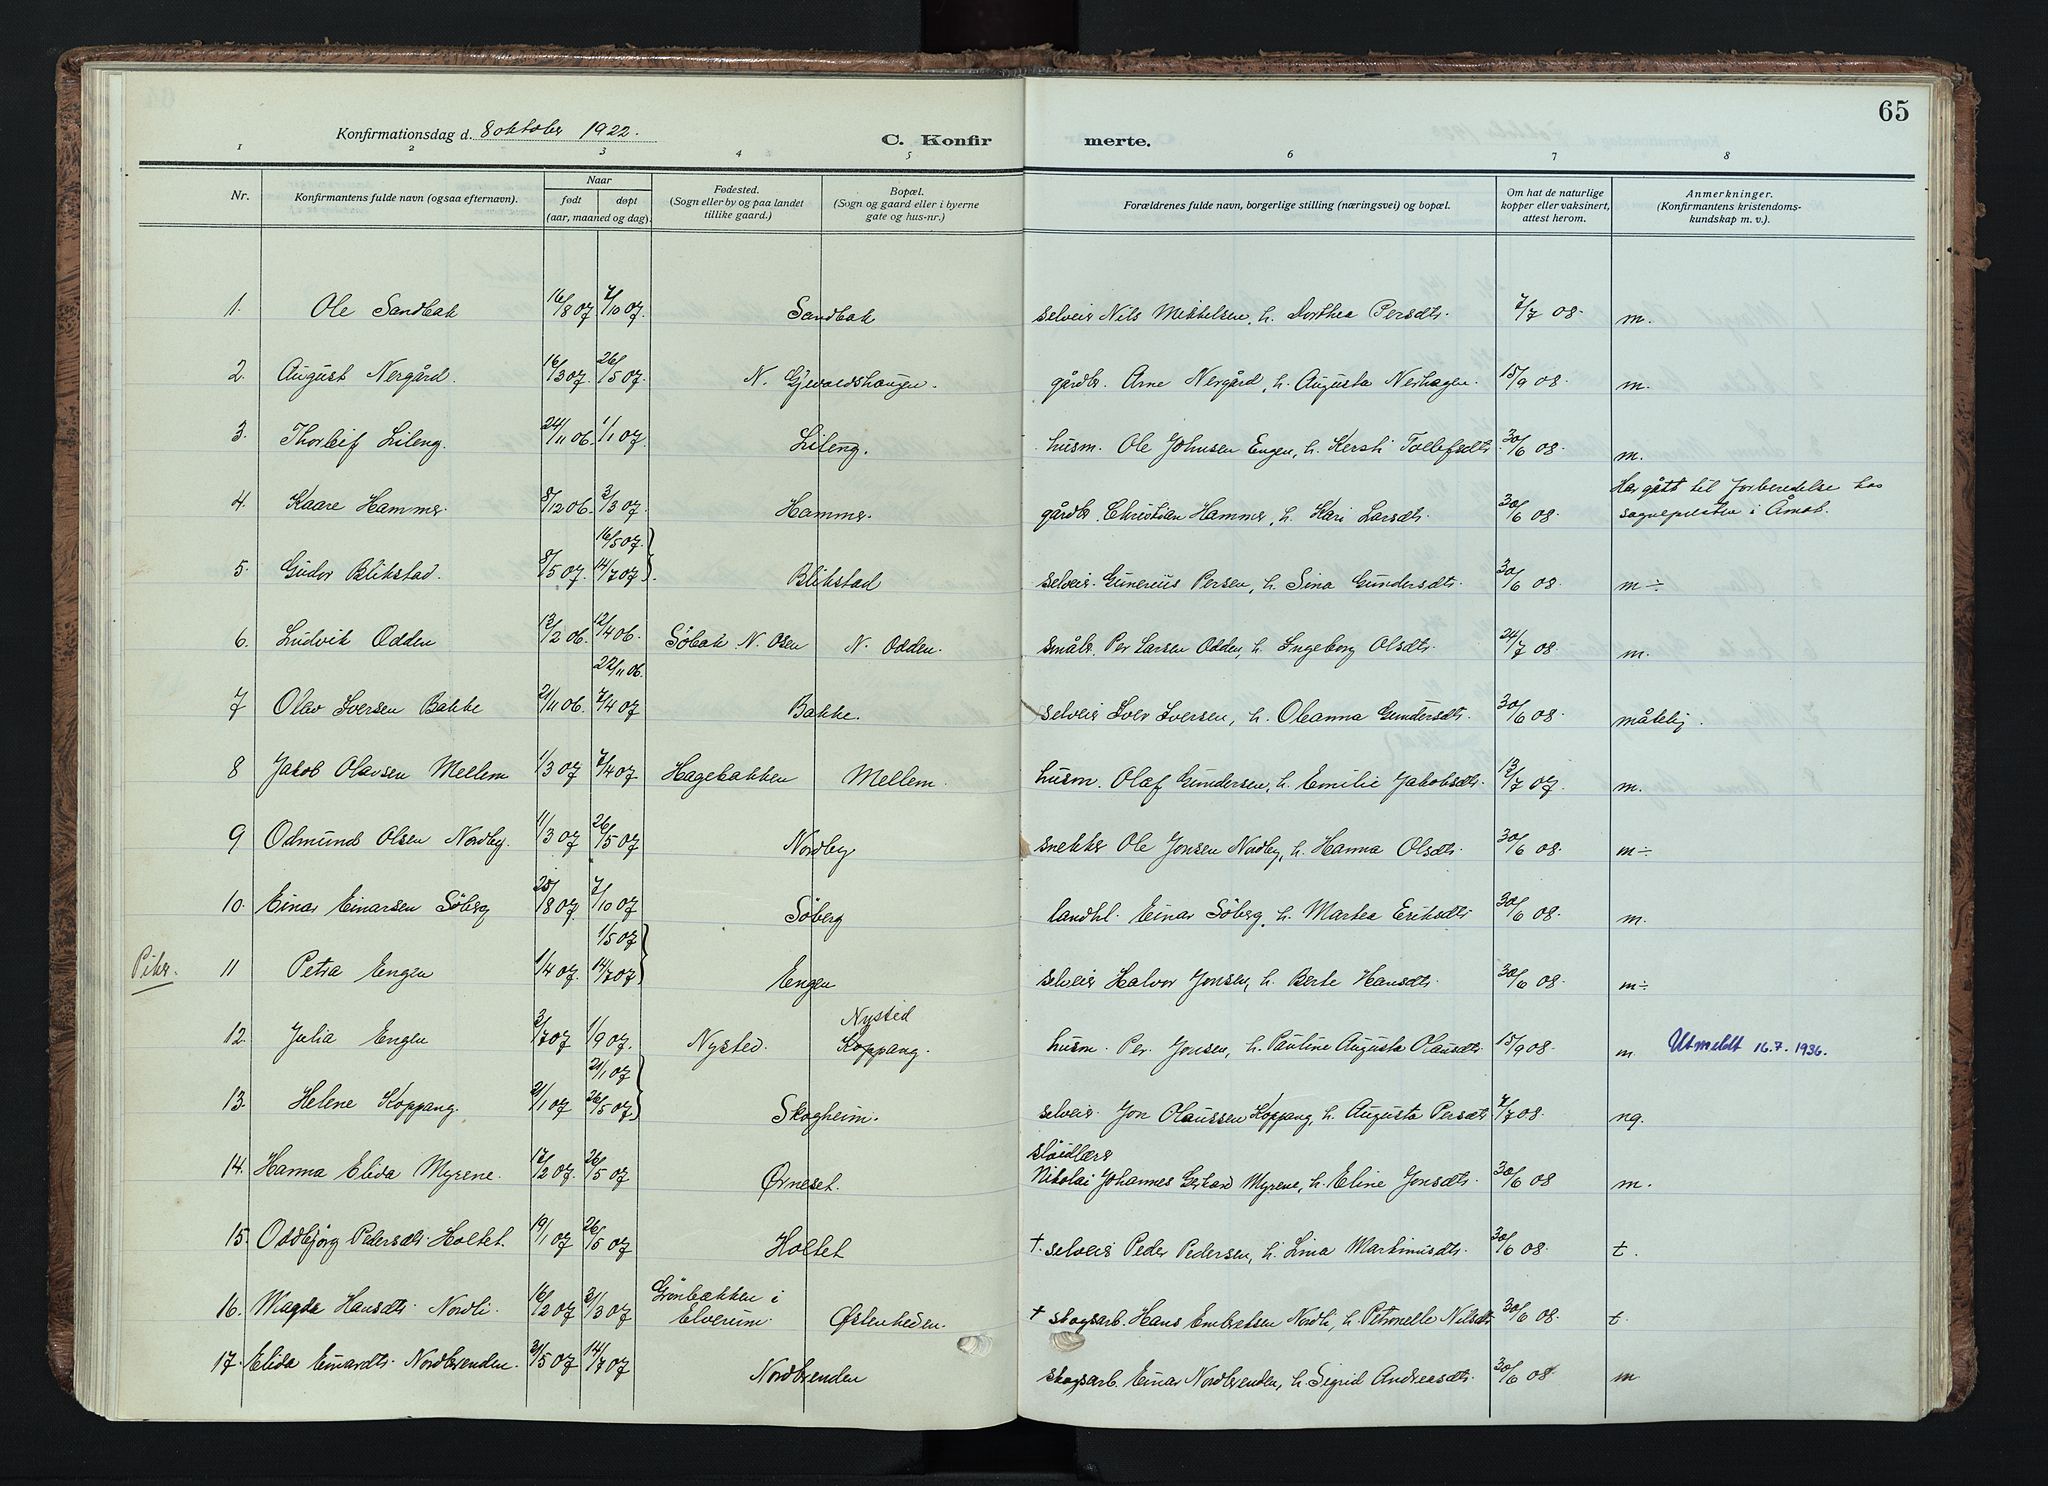 65
Konfirmationsdag d. 8 oktober 1922.
C. Konfirmerte.
1 2 3 4 5 6 7 8
Nr.
Konfirmantens fulde navn (ogsaa efternavn).
Naar
født døpt
(aar, maaned og dag).
Fødested.
(Sogn eller by og paa landet
tillike gaard.)
Bopæl.
(Sogn og gaard eller i byerne
gate og hus-nr.)
Forældrenes fulde navn, borgerlige stilling (næringsvei) og bopæl.
Om hat de naturlige
kopper eller vaksinert,
attest herom.
Anmerkninger.
(Konfirmantens kristendoms-
kundskap m. v.).
1. Ole Sandbak 16/8 07 7/10 07. Sandbak selveier Nils Mikkelsen, h. Dorthea Persdtr. 7/7 08. m.
2. August Nergård. 16/3 07. 26/5 07. N. Gjevaldshaugen. gårdbr. Arne Nergård, h. Augusta Nerhagen. 15/9 08. m.
3. Thorleif Lileng. 24/11 06. 1/1 07. Lileng. husm. Ole Johnsen Engen, h. Kersti Tollefsdtr. 30/6 08. m.
4. Kaare Hammer 8/12 06. 3/3 07. Hammer. gårdbr. Christian Hammer, h. Kari Larsdtr. 30/6 08. Har gått til forberedelse hos
sognepresten i Åmot.
16/5 07.
5. Gudor Blikstad. 8/5 07. 14/7 07. Blikstad selveier. Gunerius Persen, h. Sina Gundersdtr. 30/6 08. m÷
6. Ludvik Odden 12/2 06. 12/4 06. Söbak N. Osen N. Odden. småbr. Per Larsen Odden, h. Ingeborg Olsdtr. 24/7 08. m.
22/11 06.
7 Olav Iversen Bakke 21/11 06. 7/4 07 Bakke. selveier Iver Iversen, h. Oleanna Gundersdtr. 30/6 08. måtelig.
8 Jakob Olavsen Mellem 1/3 07 7/4 07 Hagebakken Mellem. husm. Olaf Gundersen, h. Emilie Jakobsdtr. 12/7 07. m.
9 Odmund Olsen Nordby. 11/3 07 26/5 07. Nordby snekker Ole Jonsen Nordby, h. Hanna Olsdtr. 30/6 08. m÷
10. Einar Einarsen Söberg 25/8 07. 7/10 07 Söberg landhl. Einar Söberg, h. Martea Eriksdtr 30/6 08. m.
1/5 07
Piker. 11 Petra Engen 1/4 07. 14/7 07 Engen selveier Halvor Jonsen, h. Berte Hansdtr. 30/6 08. m÷
Nysted
12. Julia Engen 3/7 07 1/9 07. Nysted. Koppang. husm. Per Jonsen, h. Pauline Augusta Olausdtr. 15/9 08. m Utmeldt 16.7.1936.
21/1 07
13. Helene Koppang. 21/1 07 26/5 07 Skogheim. selveier. Jon Olaussen Koppang, h. Augusta Persdtr 7/7 08. ng.
slöidlærer
14. Hanna Elida Myrene. 17/2 07. 26/5 07 Ørneset. Nikolai Johannes Gerhard Myrene, h. Eline Jonsdtr. 30/6 08 m.
15. Oddbjörg Pedersdtr. Holtet. 19/1 07 26/5 07 Holtet † selveier Peder Pedersen, h. Lina Martinusdtr. 30/6 08. t.
Grönbækken i
16. Magda Hansdtr. Nordli. 16/2 07 3/3 07 Elverum. Østenheden. † skogsarb. Hans Embretsen Nordli, h. Petronelle Nilsdtr. 30/6 08. t.
17. Elida Einarsdtr. Nordbrenden. 31/5 07 14/7 07 Nordbrenden skogsarb. Einar Nordbrenden, h. Sigrid Andreasdtr. 30/6 08. m